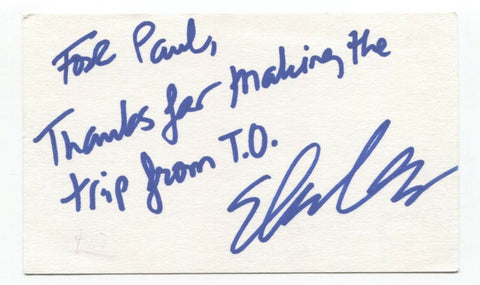 Fore Paul,
Thanks for making the
trip from T.O.